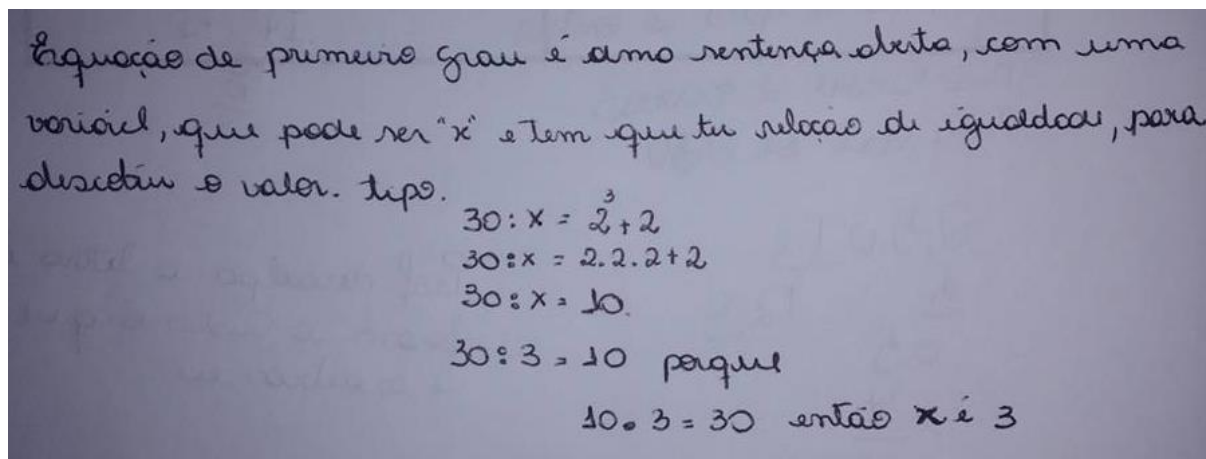 Equação de primeiro grau é uma sentença aberta, com uma
variável, que pode ser "x" e tem que ter relação de igualdade, para
descobrir o valor. tipo.
30 : x = 2³ + 2
30 : x = 2.2.2+2
30 : x = 10.
30 : 3 = 10 porque
10 . 3 = 30 então x é 3